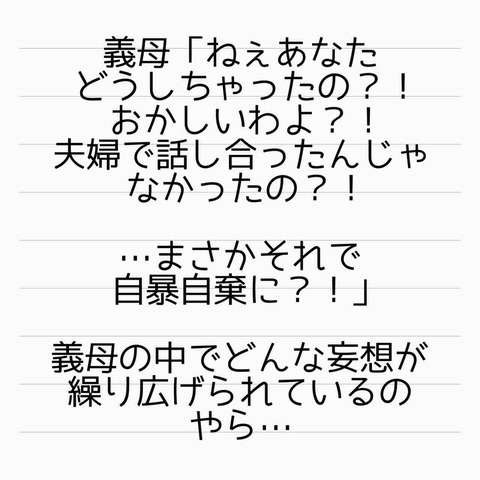 義母「ねぇあなた
どうしちゃったの？！
おかしいわよ？！
夫婦で話し合ったんじゃ
なかったの？！
…まさかそれで
自暴自棄に？！」
義母の中でどんな妄想が
繰り広げられているの
やら…